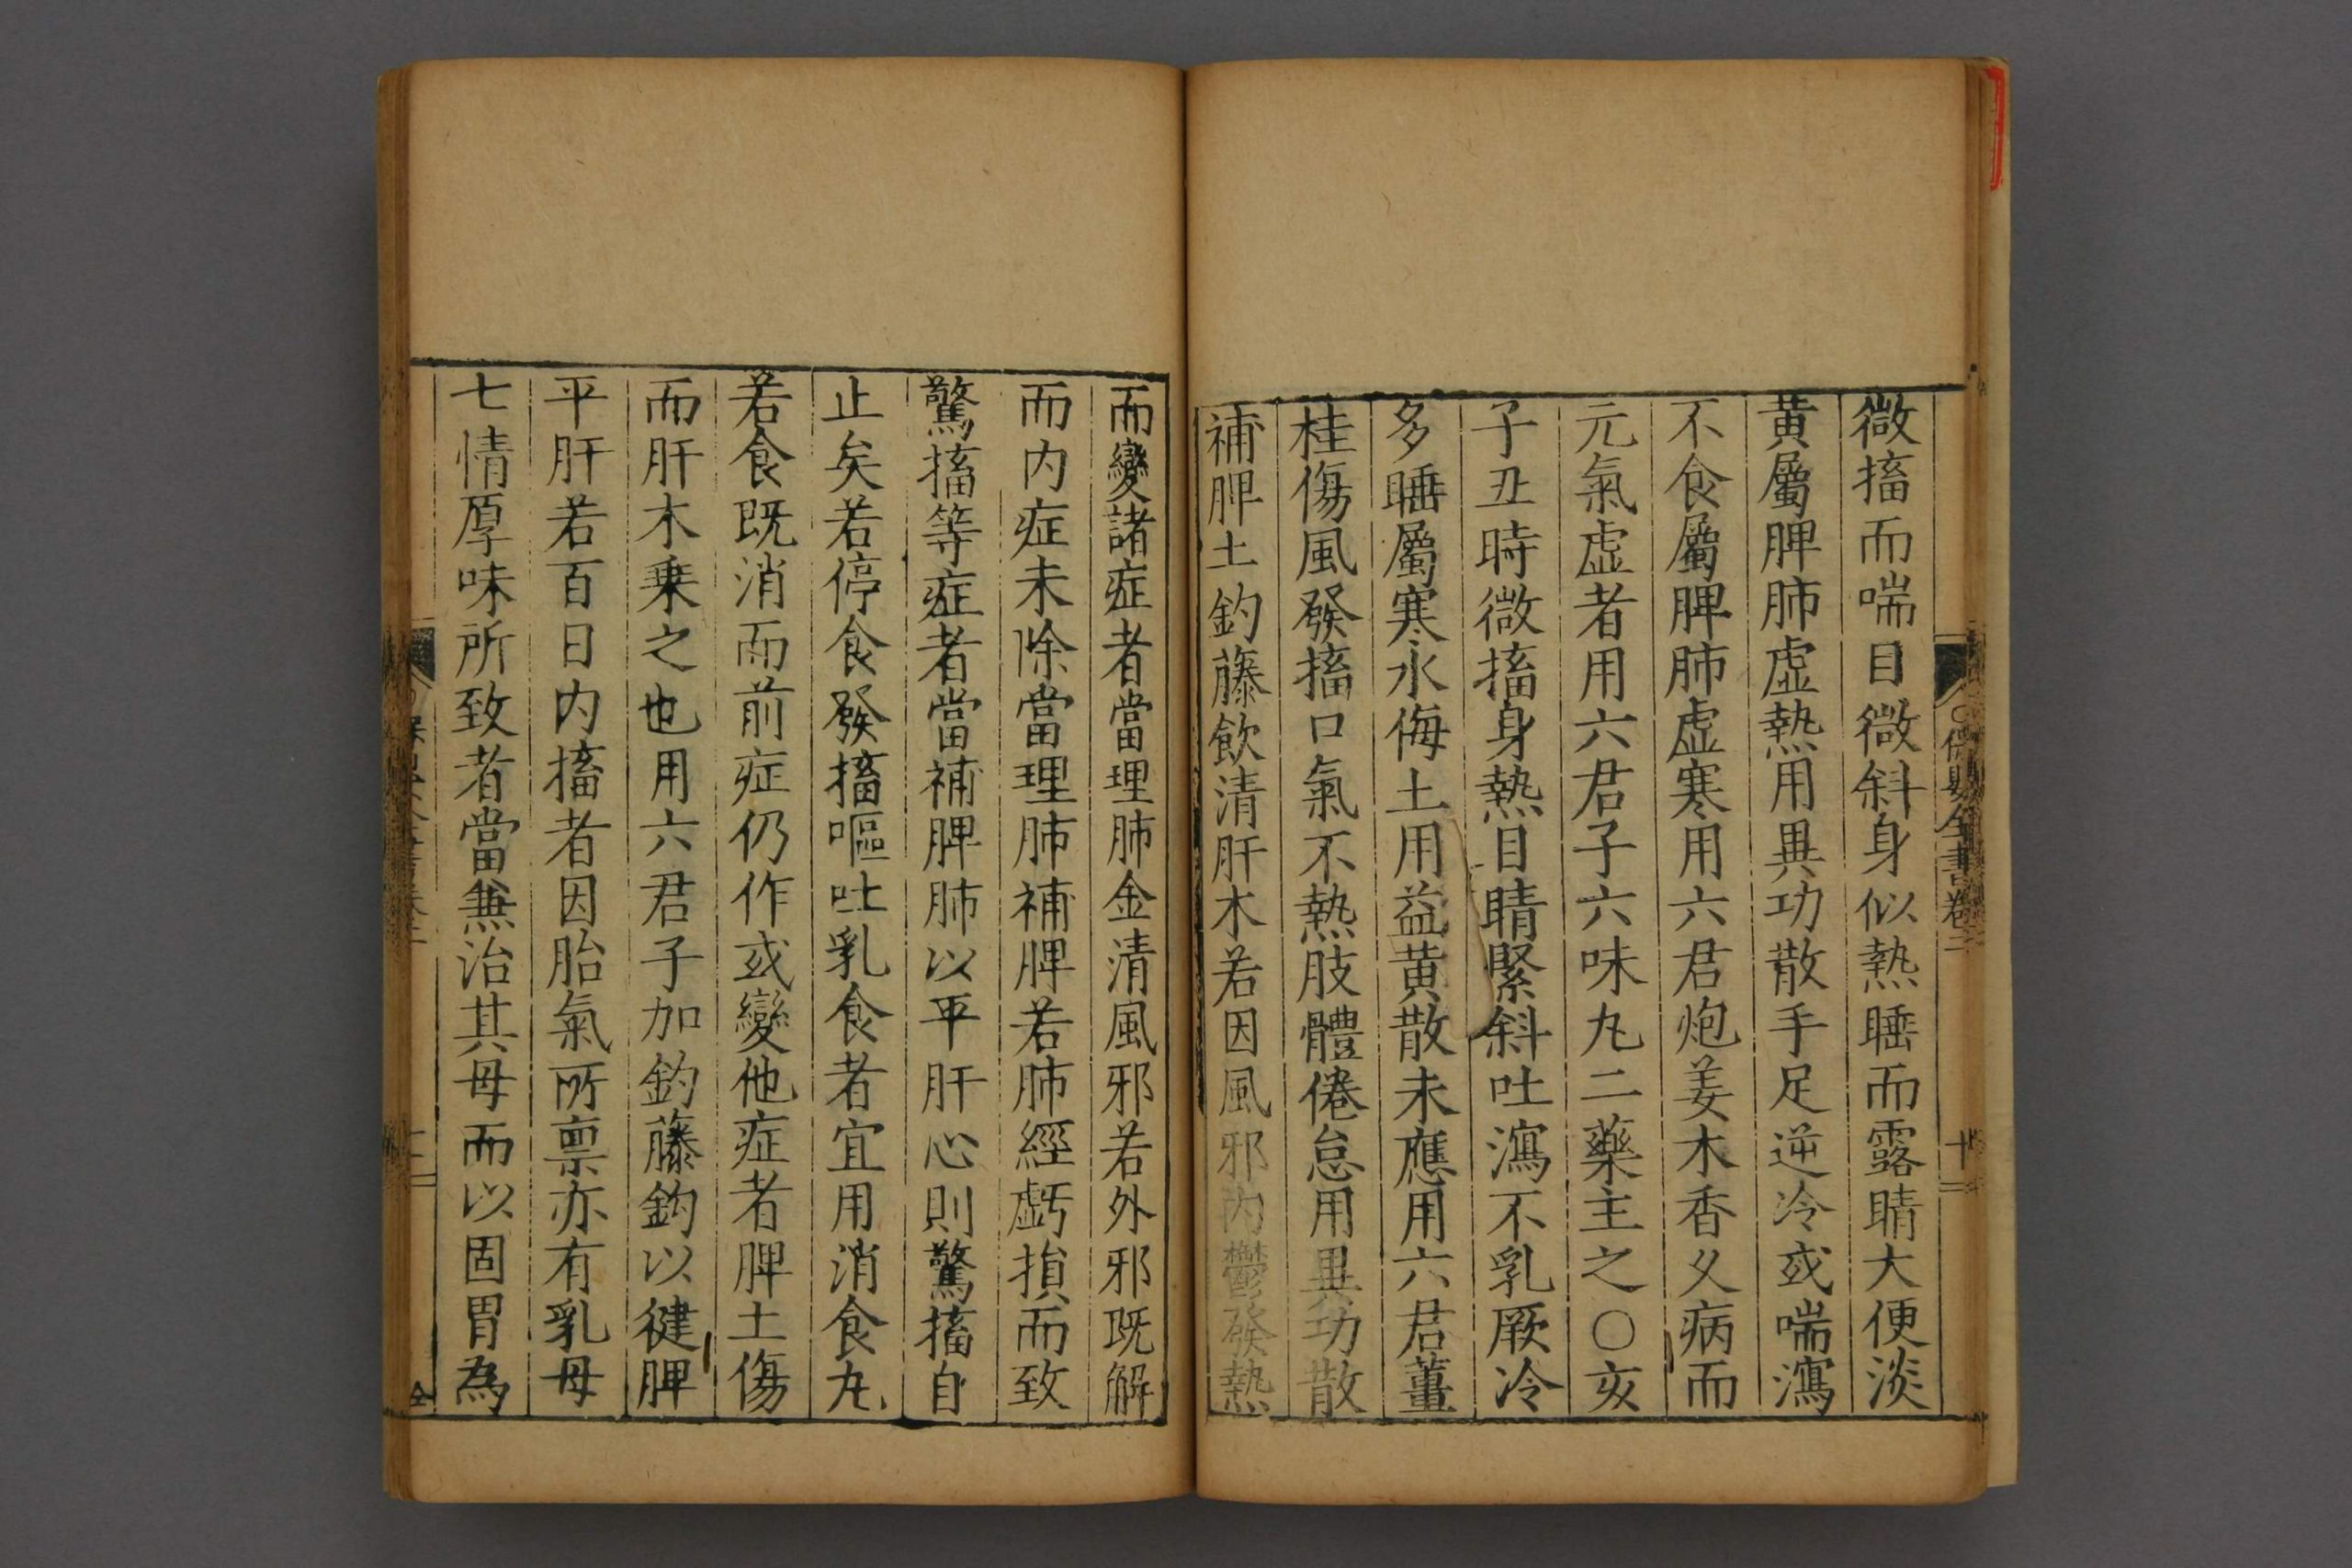 微搐而喘目微斜身似熱睡而露睛大便淡
黃屬脾肺虛熱用異功散手足逆冷或喘瀉
不食屬脾肺虛寒用六君炮姜木香久病而
元氣虛者用六君子六味丸二藥主之〇亥
子丑時微搐身熱目睛緊斜吐瀉不乳厥冷
多睡屬寒水侮土用益黃散未應用六君薑
桂傷風發搐口氣不熱肢體倦怠用異功散
補脾土鈞藤飲清肝木若因風邪內鬱發熱
而變諸症者當理肺金清風邪若外邪既解
而內症未除當理肺補脾若肺經虧損而致
驚搐等症者當補脾肺以平肝心則驚搐自
止矣若停食發搐嘔吐乳食者宜用消食丸
若食既消而前症仍作或變他症者脾土傷
而肝木乗之也用六君子加鈞藤鈎以健脾
平肝若百日內搐者因胎氣所禀亦有乳母
七情厚味所致者當兼治其母而以固胃為